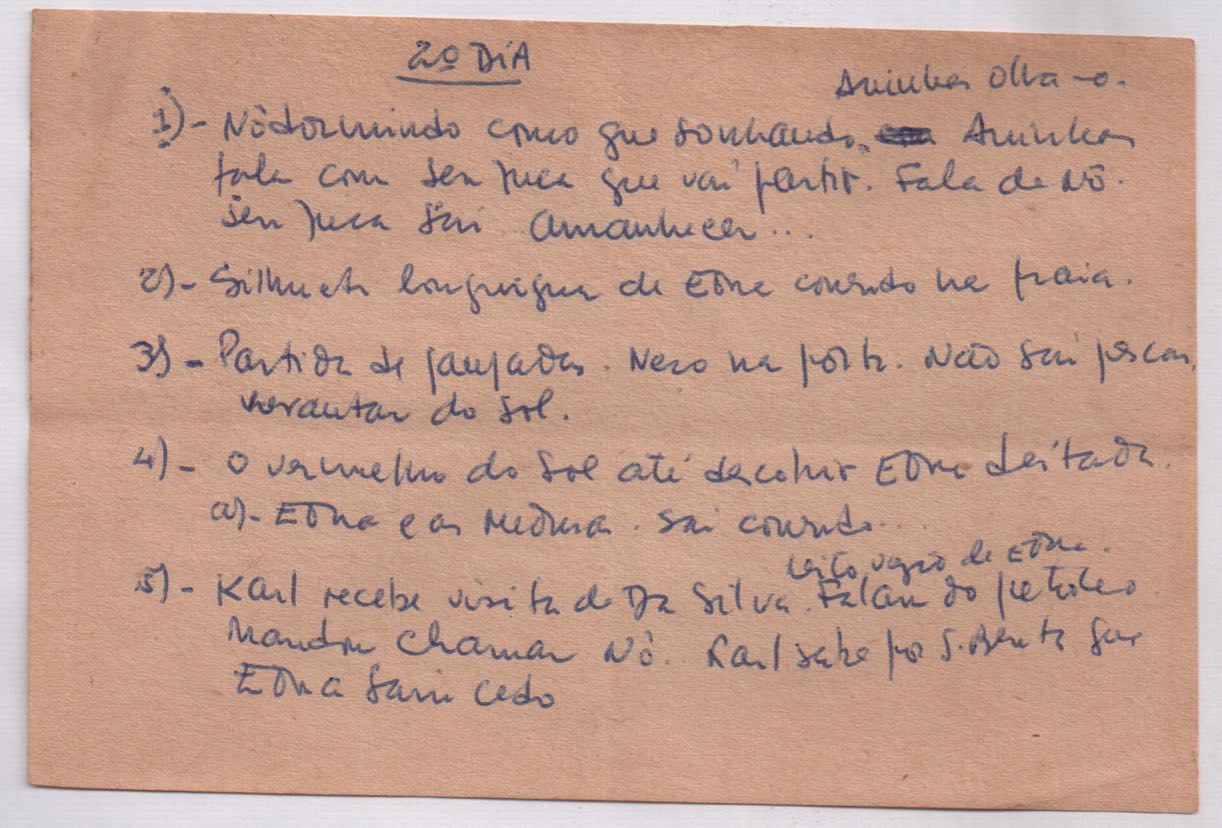 2º DIA
Aninhas olha-o.
1)- Nô dormindo como que sonhando, Aninhas
fala com seu Juca que vai partir. Fala de Nô.
seu Juca sai. Amanhecer...
2)- Silhueta longuigua de Edna correndo na praia.
3)- Partida de jangadas. Neco na porta. Não sai pescar,
levantar do sol.
4)- O vermelho do sol até descobrir Edna deitada.
a)- Edna e as medusas. Sai correndo...
leito vazio de Edna.
5)- Karl recebe visita de Da Silva. Falam do petróleo.
Mandou chamar Nô. Karl sabe por S. Benta que
Edna saiu cedo